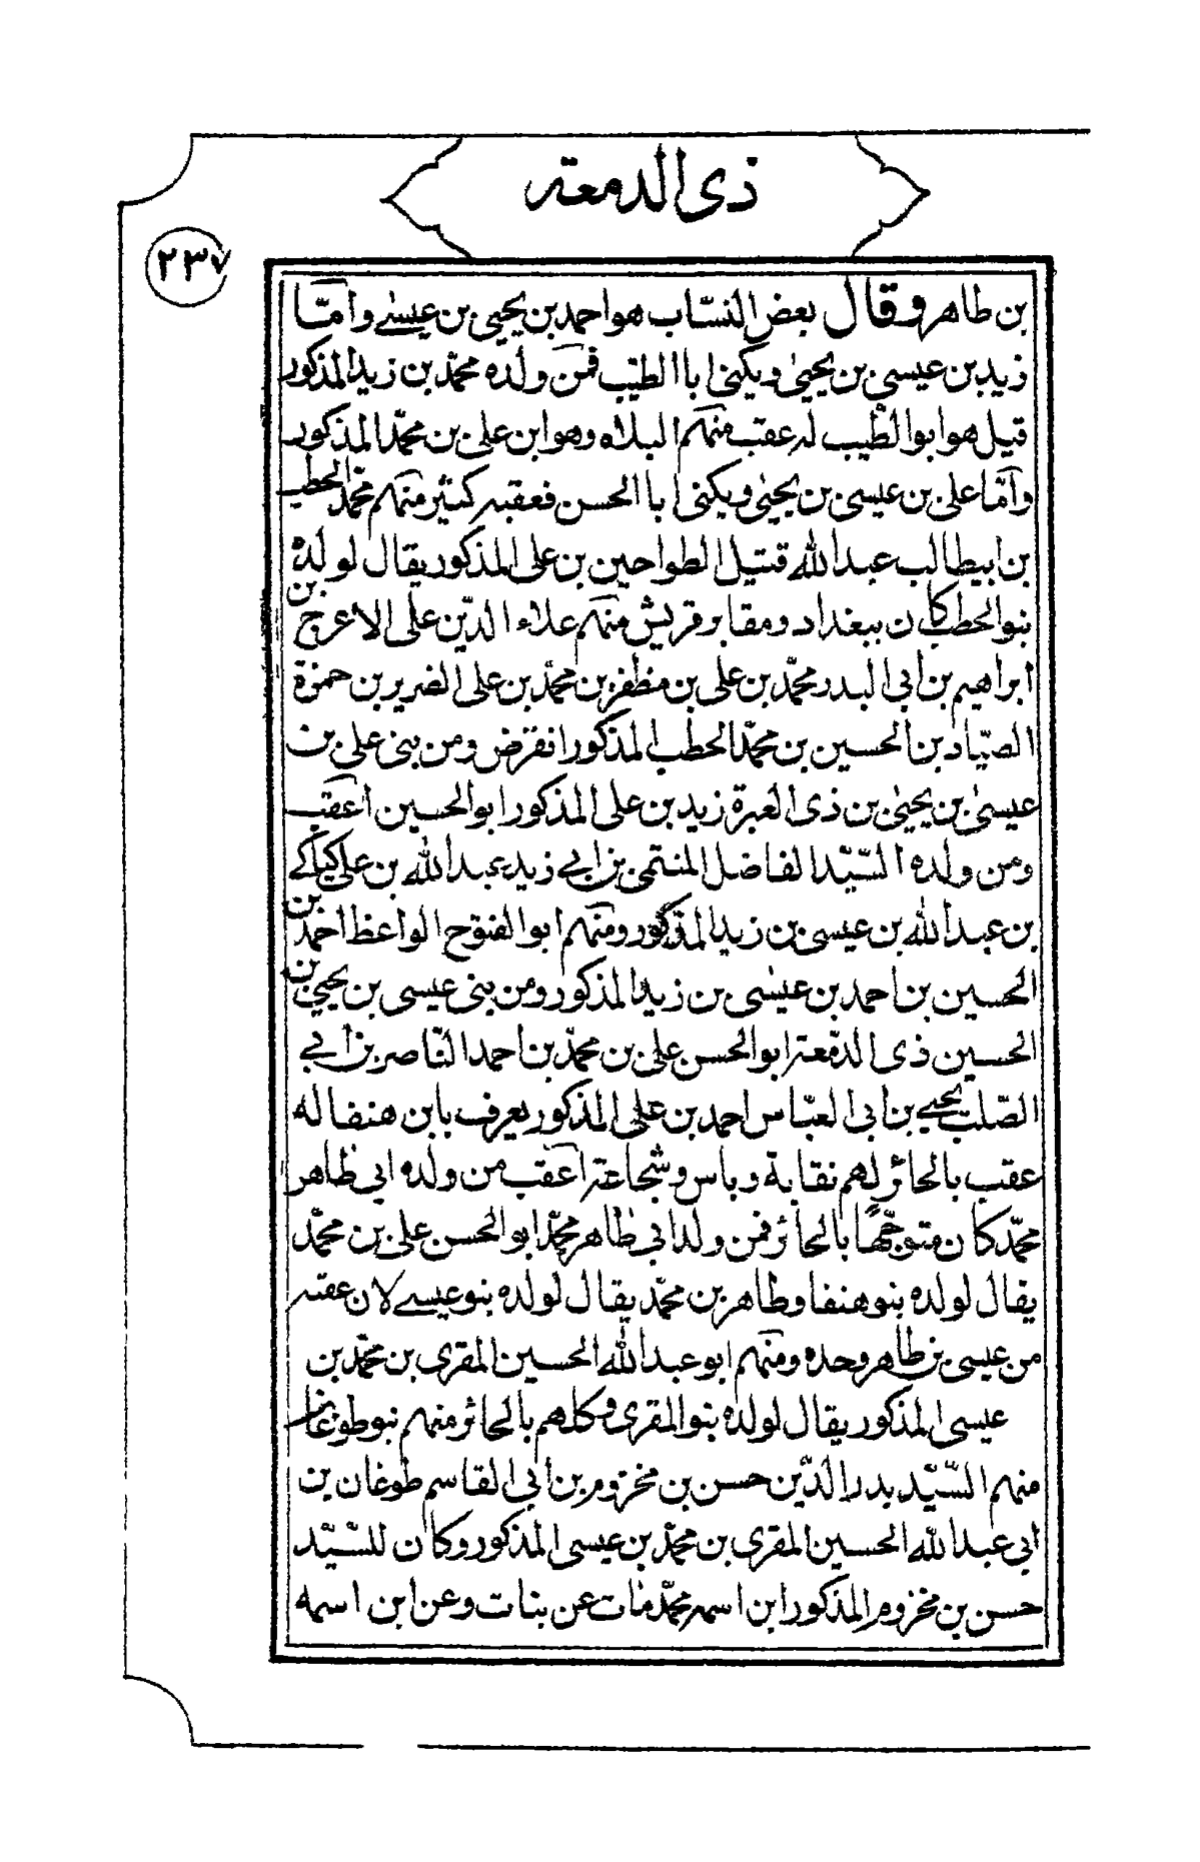 ذی الدمعة
٢٣٧
بن طاهر وقال بعض النسّاب هو احمد بن یحیی بن عیسی وامّا
زید بن عیسی بن یحیی ویکنی ابا الطیّب فمن ولده محمّد بن زید المذکور
قیل هو ابو الطیب له عقب منهم البلاه وهو ابن علی بن محمّد المذکور
وامّا علی بن عیسی بن یحیی ویکنی ابا الحسن فعقبه کثیر منهم محمّد الحطب
بن ابیطالب عبد الله قتیل الطواحین بن علی المذکور یقال لولده
بنو الحطب کان ببغداد ومقابر قریش منهم علاء الدّین علی الاعرج بن
ابراهیم بن ابی البدر محمّد بن علی بن مظفر بن محمّد بن علی الضریر بن حمزة
الصیّاد بن الحسین بن محمّد الحطب المذکور انقرض ومن بنی علی بن
عیسی بن یحیی بن ذی العبرة زید بن علی المذکور ابو الحسین اعقب
ومن ولده السّیّد الفاضل المنتمی بن ابی زید عبد الله بن علی کیاکی
بن عبد الله بن عیسی بن زید المذکور ومنهم ابو الفتوح الواعظ احمد بن
الحسین بن احمد بن عیسی بن زید المذکور ومن بنی عیسی بن یحیی بن
الحسین ذی الدّمعة ابو الحسن علی بن محمّد بن احمد النّاصر بن ابی
الصّلب یحیی بن ابی العبّاس احمد بن علی المذکور یعرف بابن هنفا له
عقب بالحائر لهم نقابة وباس وشجاعة اعقب من ولده ابی طاهر
محمّد کان متوجّهًا بالحائر فمن ولد ابی طاهر محمّد ابو الحسن علی بن محمّد
یقال لولده بنو هنفا وطاهر بن محمّد یقال لولده بنو عیسی لان عقبه
من عیسی بن طاهر وحده ومنهم ابو عبد الله الحسین المقری بن محمّد بن
عیسی المذکور یقال لولده بنو المقری وکلهم بالحائر منهم بنو طوغان
منهم السّیّد بدر الدّین حسن بن مخزوم بن ابی القاسم طوغان بن
ابی عبد الله الحسین المقری بن محمّد بن عیسی المذکور وکان للسّیّد
حسن بن مخزوم المذکور ابن اسمه محمّد مات عن بنات وعن ابن اسمه